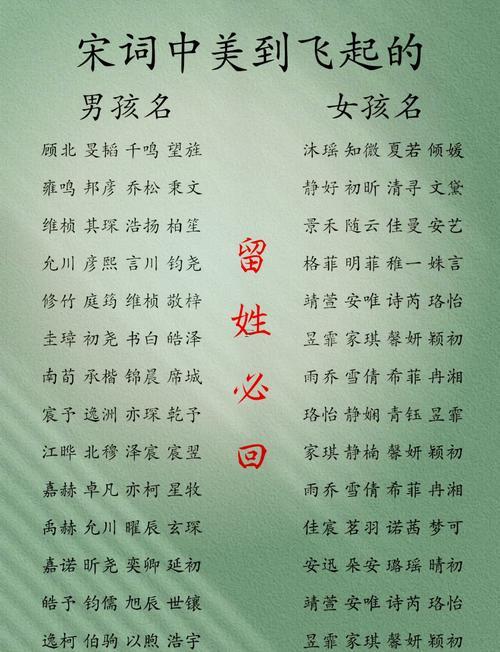 宋词中美到飞起的
男孩名
顾北 旻韬 千鸣 望旌
雍鸣 邦彦 乔松 秉文
维桢 其琛 浩扬 柏笙
允川 彦熙 言川 钧尧
修竹 庭筠 维桢 敬梓
圭璋 初尧 书白 皓泽
南荀 承楷 锦晨 席城
宸予 逸洲 亦琛 乾予
江晔 北穆 泽宸 宸翌
嘉赫 卓凡 亦柯 星牧
禹赫 允川 曜辰 玄琛
嘉诺 昕尧 奕卿 延初
皓予 钧儒 旭辰 世镶
逸柯 伯驹 以煦 浩宇
留
姓
必
回
女孩名
沐瑶 知微 夏若 倾媛
静好 初昕 清寻 文黛
景禾 随云 佳曼 安艺
格菲 明菲 稚一 姝言
靖萱 安唯 诗芮 珞怡
昱霏 家琪 馨妍 颖初
雨乔 雪倩 希菲 冉湘
珞怡 静娴 青钰 昱霏
家琪 静楠 馨妍 颖初
雨乔 雪倩 希菲 冉湘
佳宸 茗羽 诺茜 梦可
安迅 朵安 璐瑶 晴初
靖萱 安唯 诗芮 珞怡
昱霏 家琪 馨妍 颖初